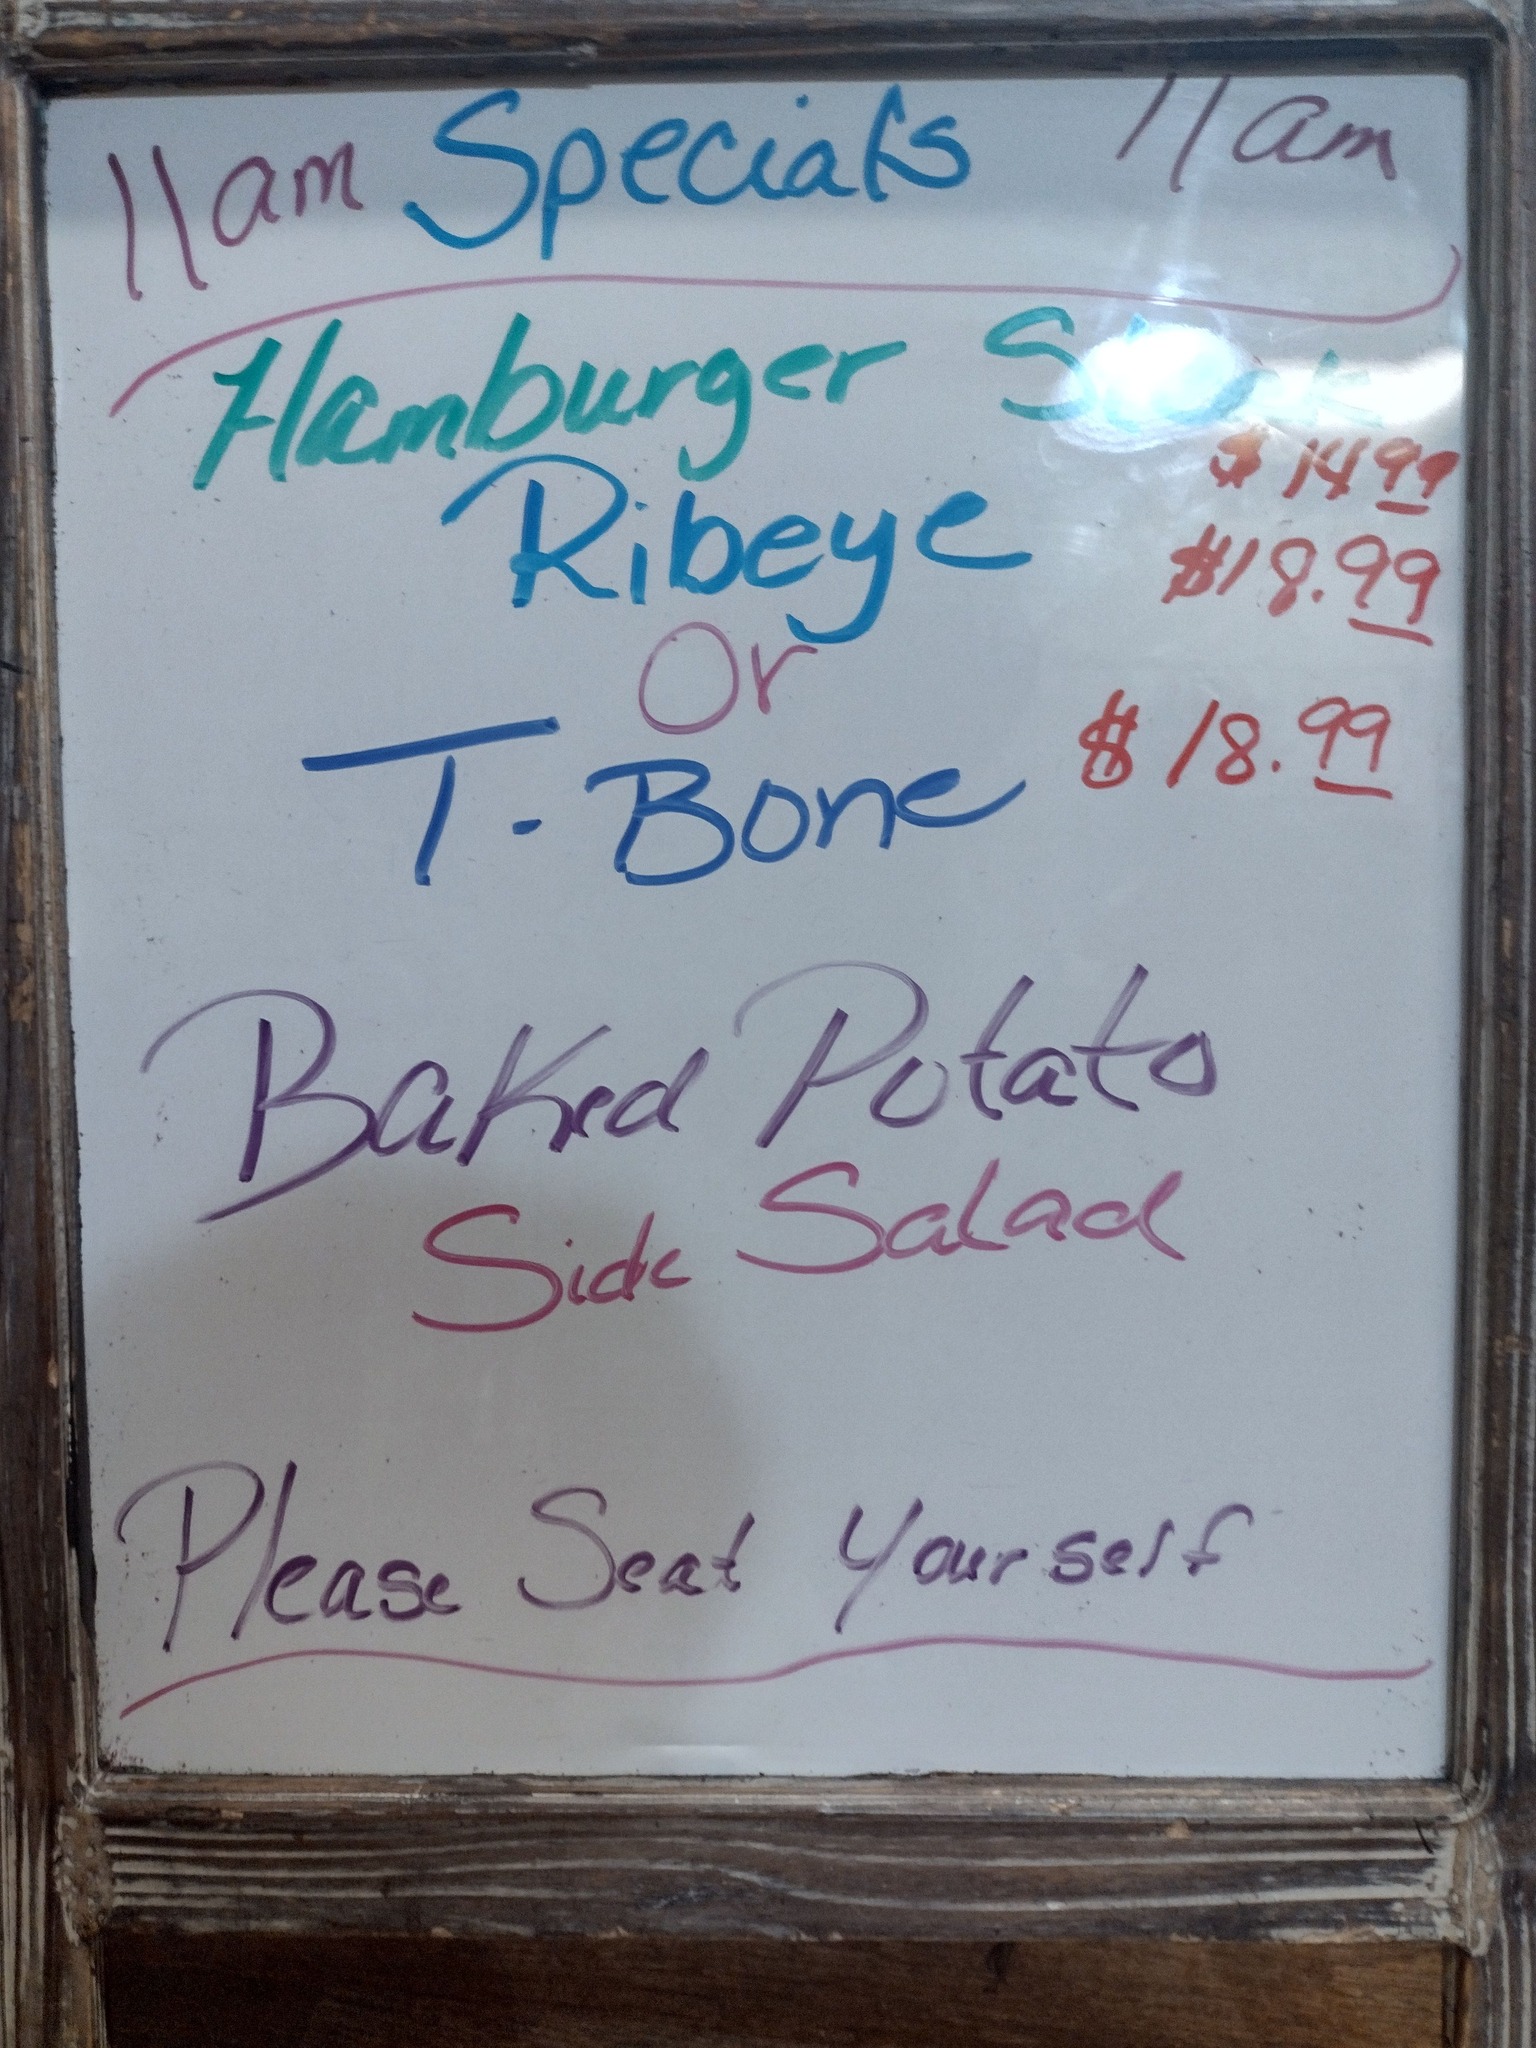 11am Specials 11am
Hamburger
$14 99
Ribeye $18.99
Or
T-Bone $18.99
Baked Potato
Side Salad
Please Seat Yourself